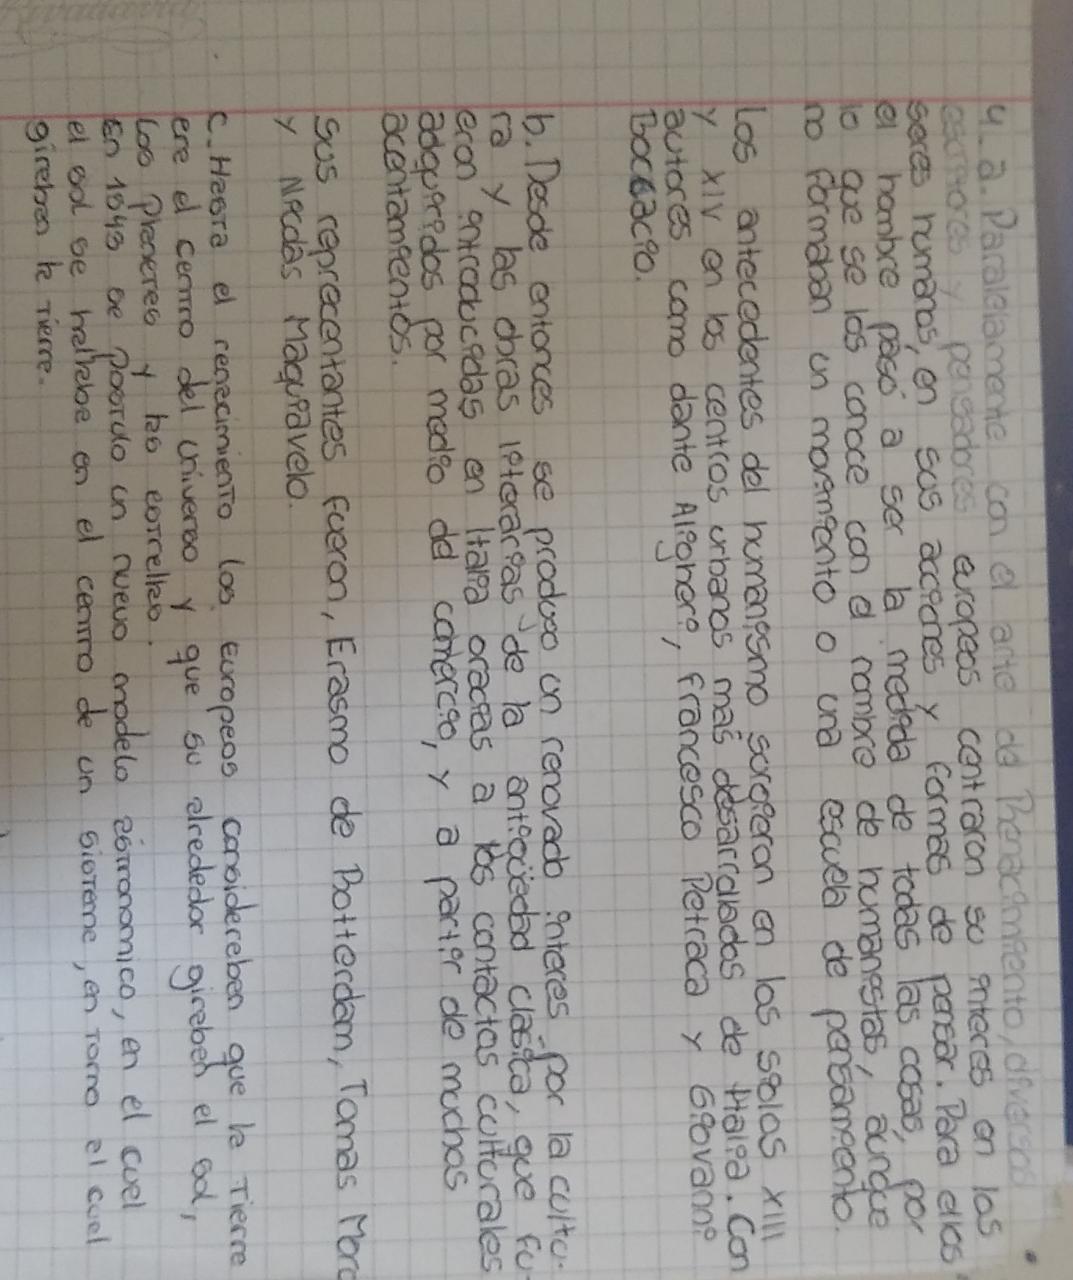 4-a. Paralelamente con el arte del Renacimiento, diversos
escritores y pensadores europeos centraron su interes en los
seres humanos, en sus acciones y formas de pensar. Para ellos
el hombre pasó a ser la medida de todas las cosas, por
lo que se los conoce con el nombre de humanistas, aunque
no formaban un movimiento o una escuela de pensamiento.
Los antecedentes del humanismo sorgieron en los siolos XIII
y XIV en los centros urbanos más desarrolados de Italia. Con
autores como dante Aligheri, francesco Petraca y Giovanni
Boccacio.
b. Desde entonces se produxo un renovado interes por la cultu-
ra y las obras literarias de la antigüedad clásica, que fu-
eron introducidas en Italia gracias a los contactos culturales
adquiridos por medio del comercio, y a partir de muchos
acentamientos.
Sus reprecentantes fueron, Erasmo de Rotterdam, Tomas Moro
y Nicolás Maquiavelo.
C- Hasta el renacimiento los europeos consideraban que la Tierra
era el centro del Universo y que su alrededor giraban el sol,
los planetas y las estrellas.
En 1543 se postulo un nuevo modelo astronomico, en el cual
el sol se hallaba en el centro de un sistema, en torno al cual
giraban la Tierra.